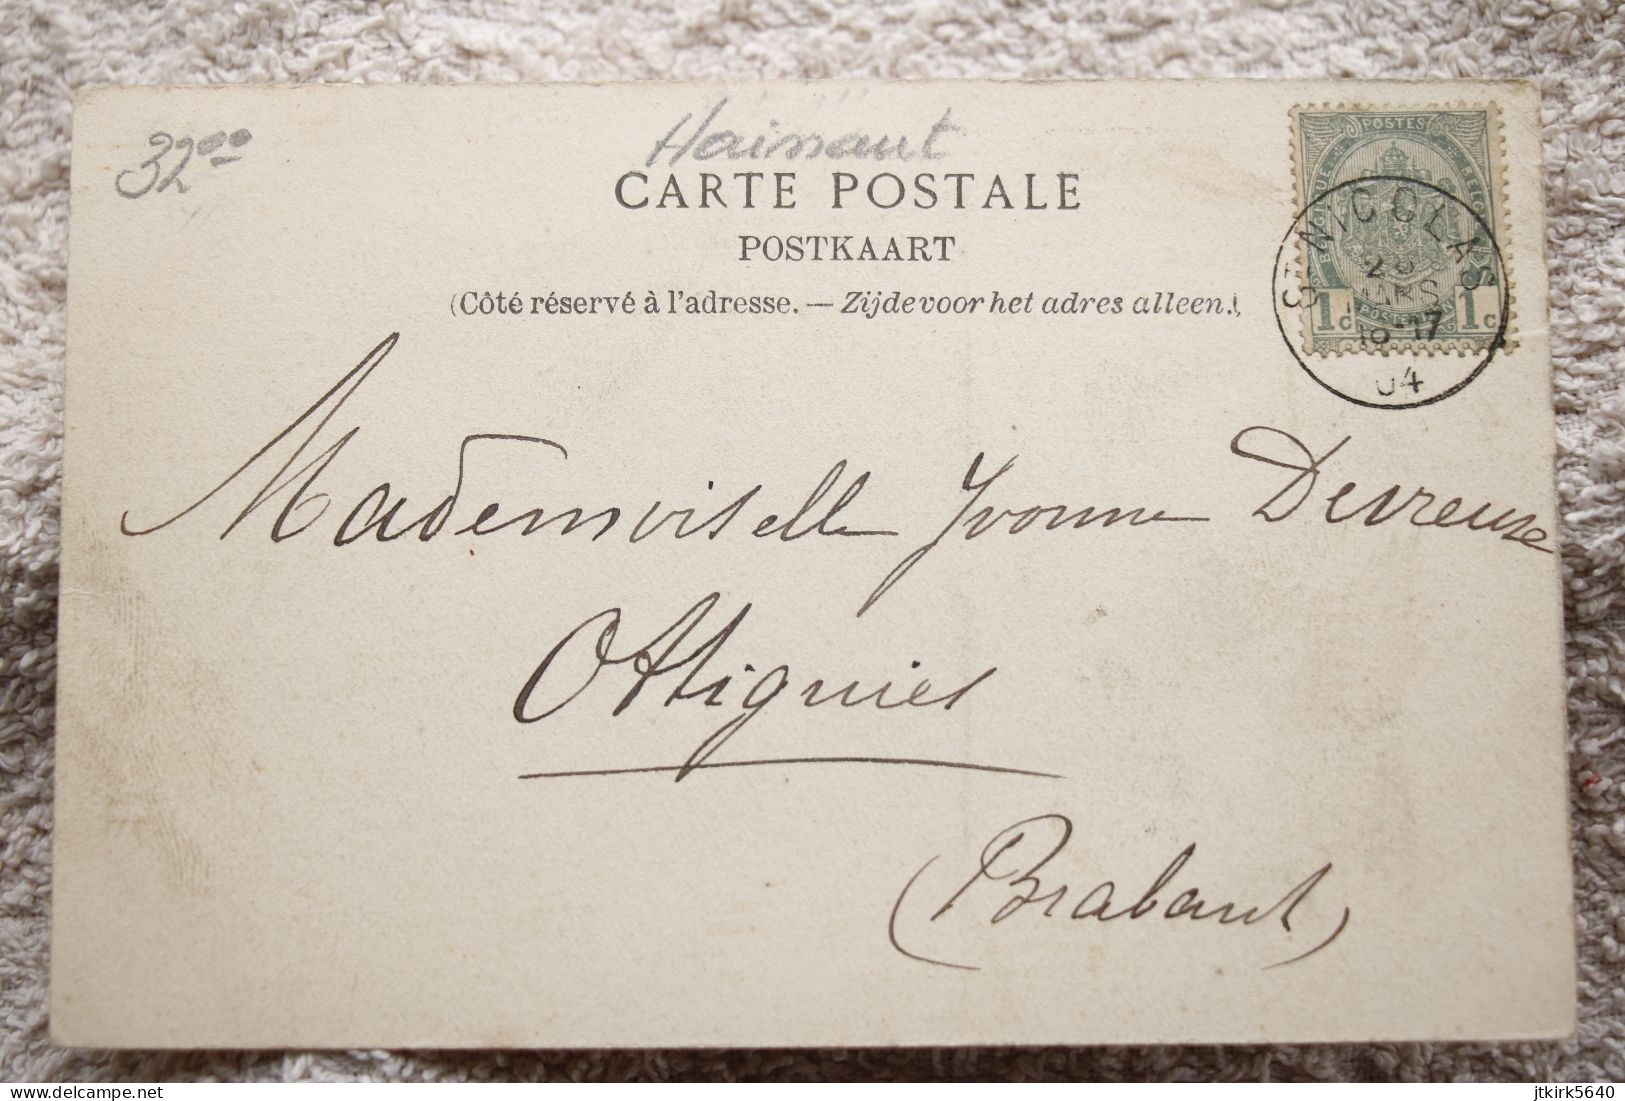 32⁰⁰
Hainaut
CARTE POSTALE
POSTKAART
(Côté réservé à l'adresse. — Zijde voor het adres alleen.)
POSTES
BELGIQUE BELGIË
1c POSTERIJEN 1c
ST-NICOLAS
MARS
16-17
04
Mademoiselle Yvonne Devreuse
Ottignies
(Brabant)
delcampe.net
jtkirk5640